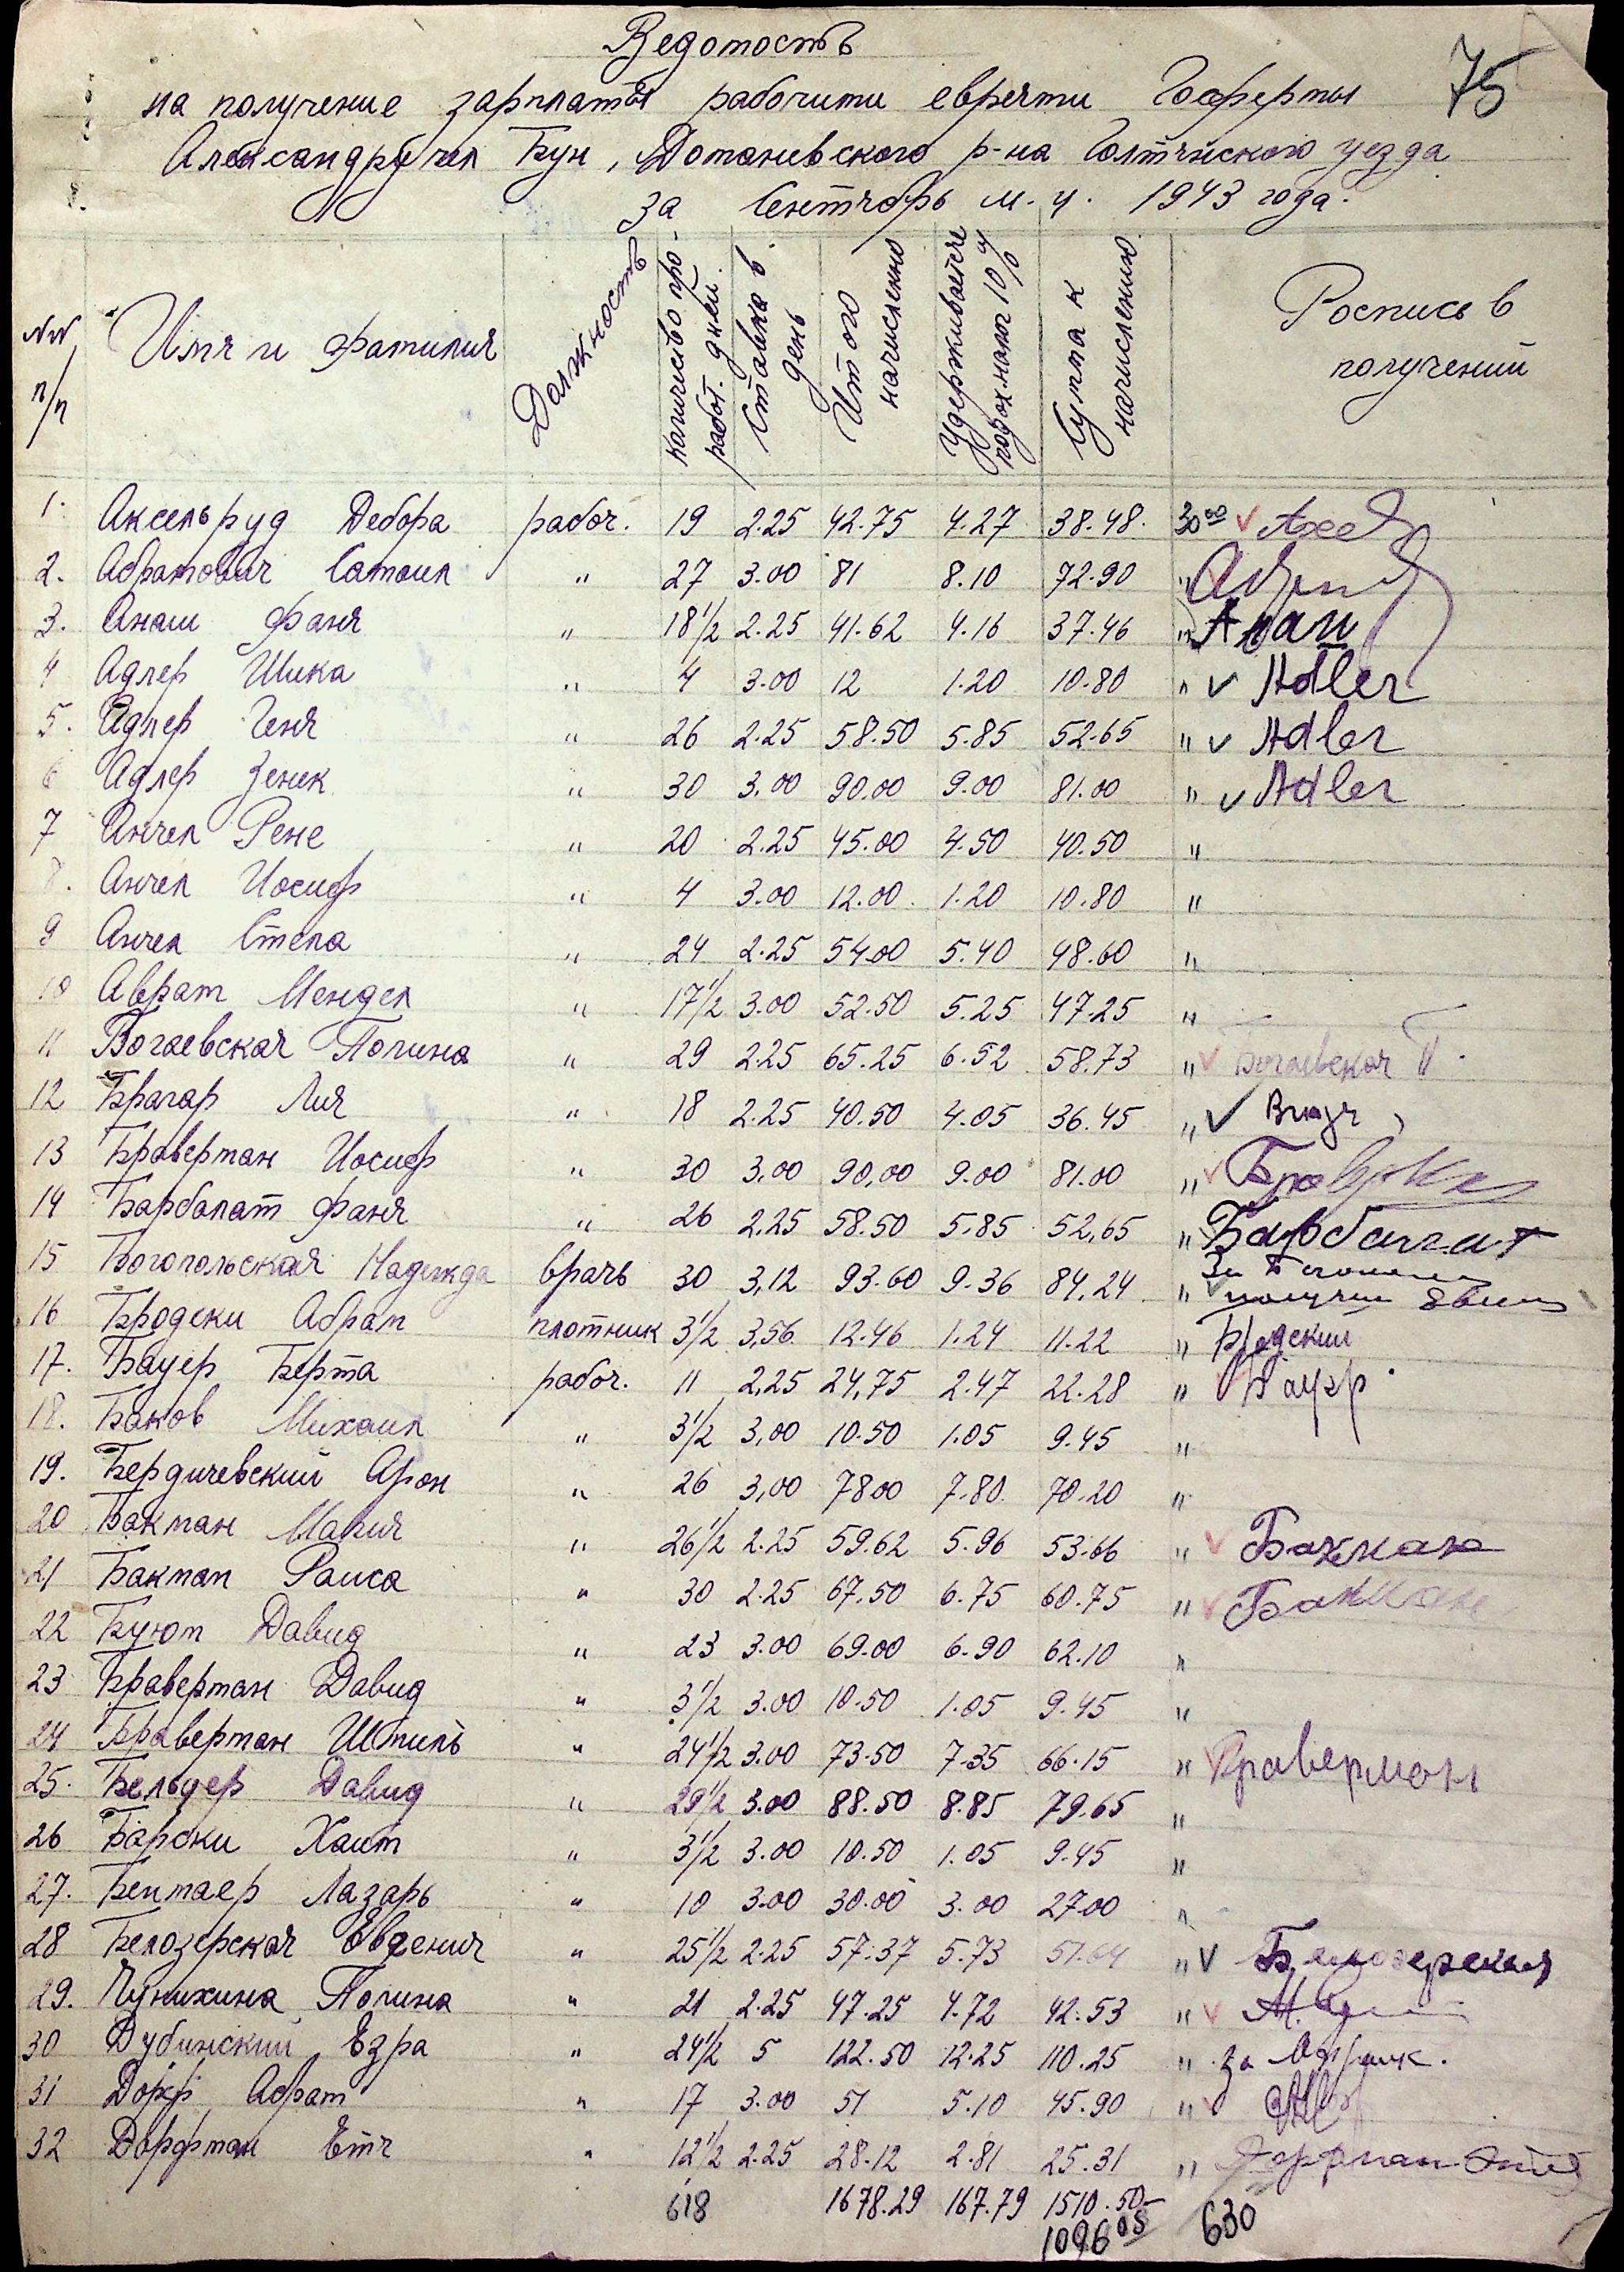 Ведомость
75
на получение зарплаты рабочими евреями Госфермы
Александрфел Бун, Доманевского р-на Голтянского уезда
За Сентябрь м-ц. 1943 года.
NN п/п Имя и фамилия Должность Количество про-работ. дней. Ставка в день Итого начисленно Удерживается подох. налог 10% Сумма к начислению Роспись в получений
1. Аксельруд Дебора рабоч. 19 2.25 42.75 4.27 38.48. 30⁰⁰ v
2. Абрамович Самоил " 27 3.00 81 8.10 72.90 "
3. Анаш Фаня " 18½ 2.25 41.62 4.16 37.46 " Анаш
4 Адлер Шика " 4 3.00 12 1.20 10.80 " v Adler
5. Адлер Геня " 26 2.25 58.50 5.85 52.65 " v Adler
6 Адлер Зеник " 30 3.00 90.00 9.00 81.00 " v Adler
7 Анчел Рене " 20 2.25 45.00 4.50 40.50 "
8. Анчел Иосиф " 4 3.00 12.00 1.20 10.80 "
9 Анчел Стела " 24 2.25 54.00 5.40 48.60 "
10 Аврам Мендел " 17½ 3.00 52.50 5.25 47.25 "
11 Богаевская Полина " 29 2.25 65.25 6.52 58.73 " v Богаевская П.
12 Брагар Лия " 18 2.25 40.50 4.05 36.45 " v
13 Браверман Иосиф " 30 3,00 90,00 9.00 81.00 " v
14 Барбалат Фаня " 26 2,25 58.50 5.85 52,65 " Барбалат
15 Богопольская Надежда врачь 30 3,12 93.60 9.36 84,24 " v
16 Бродски Абрам плотник 3½ 3,56 12.46 1.24 11.22 " Бродский
17. Бауер Берта рабоч. 11 2,25 24,75 2.47 22.28 " Бауэр
18. Баков Михаил " 3½ 3,00 10.50 1.05 9.45 "
19. Бердичевский Арон " 26 3,00 78.00 7.80 70.20 "
20 Бакман Мария " 26½ 2.25 59.62 5.96 53.66 " v Бакман
21 Бакман Раиса " 30 2.25 67.50 6.75 60.75 " v Бакман
22 Буюм Давид " 23 3.00 69.00 6.90 62.10 "
23 Браверман Давид " 3½ 3.00 10.50 1.05 9.45 "
24 Браверман Шмиль " 24½ 3.00 73.50 7.35 66.15 " v Браверман
25. Бельцер Давид " 29½ 3.00 88.50 8.85 79.65 "
26 Барски Хаим " 3½ 3.00 10.50 1.05 9.45 "
27. Бекмаер Лазарь " 10 3.00 30.00 3.00 27.00 "
28 Белозерская Евгения " 25½ 2.25 57.37 5.73 51.64 " v Белозерская
29. Чунихина Полина " 21 2.25 47.25 4.72 42.53 " v
30 Дубинский Езра " 24½ 5 122.50 12.25 110.25 " за
31 Дорф Абрам " 17 3.00 51 5.10 45.90 " v
32 Дорфман Етя " 12½ 2.25 28.12 2.81 25.31 "
618 1678.29 167.79 1510.50
1096⁰⁵ 630